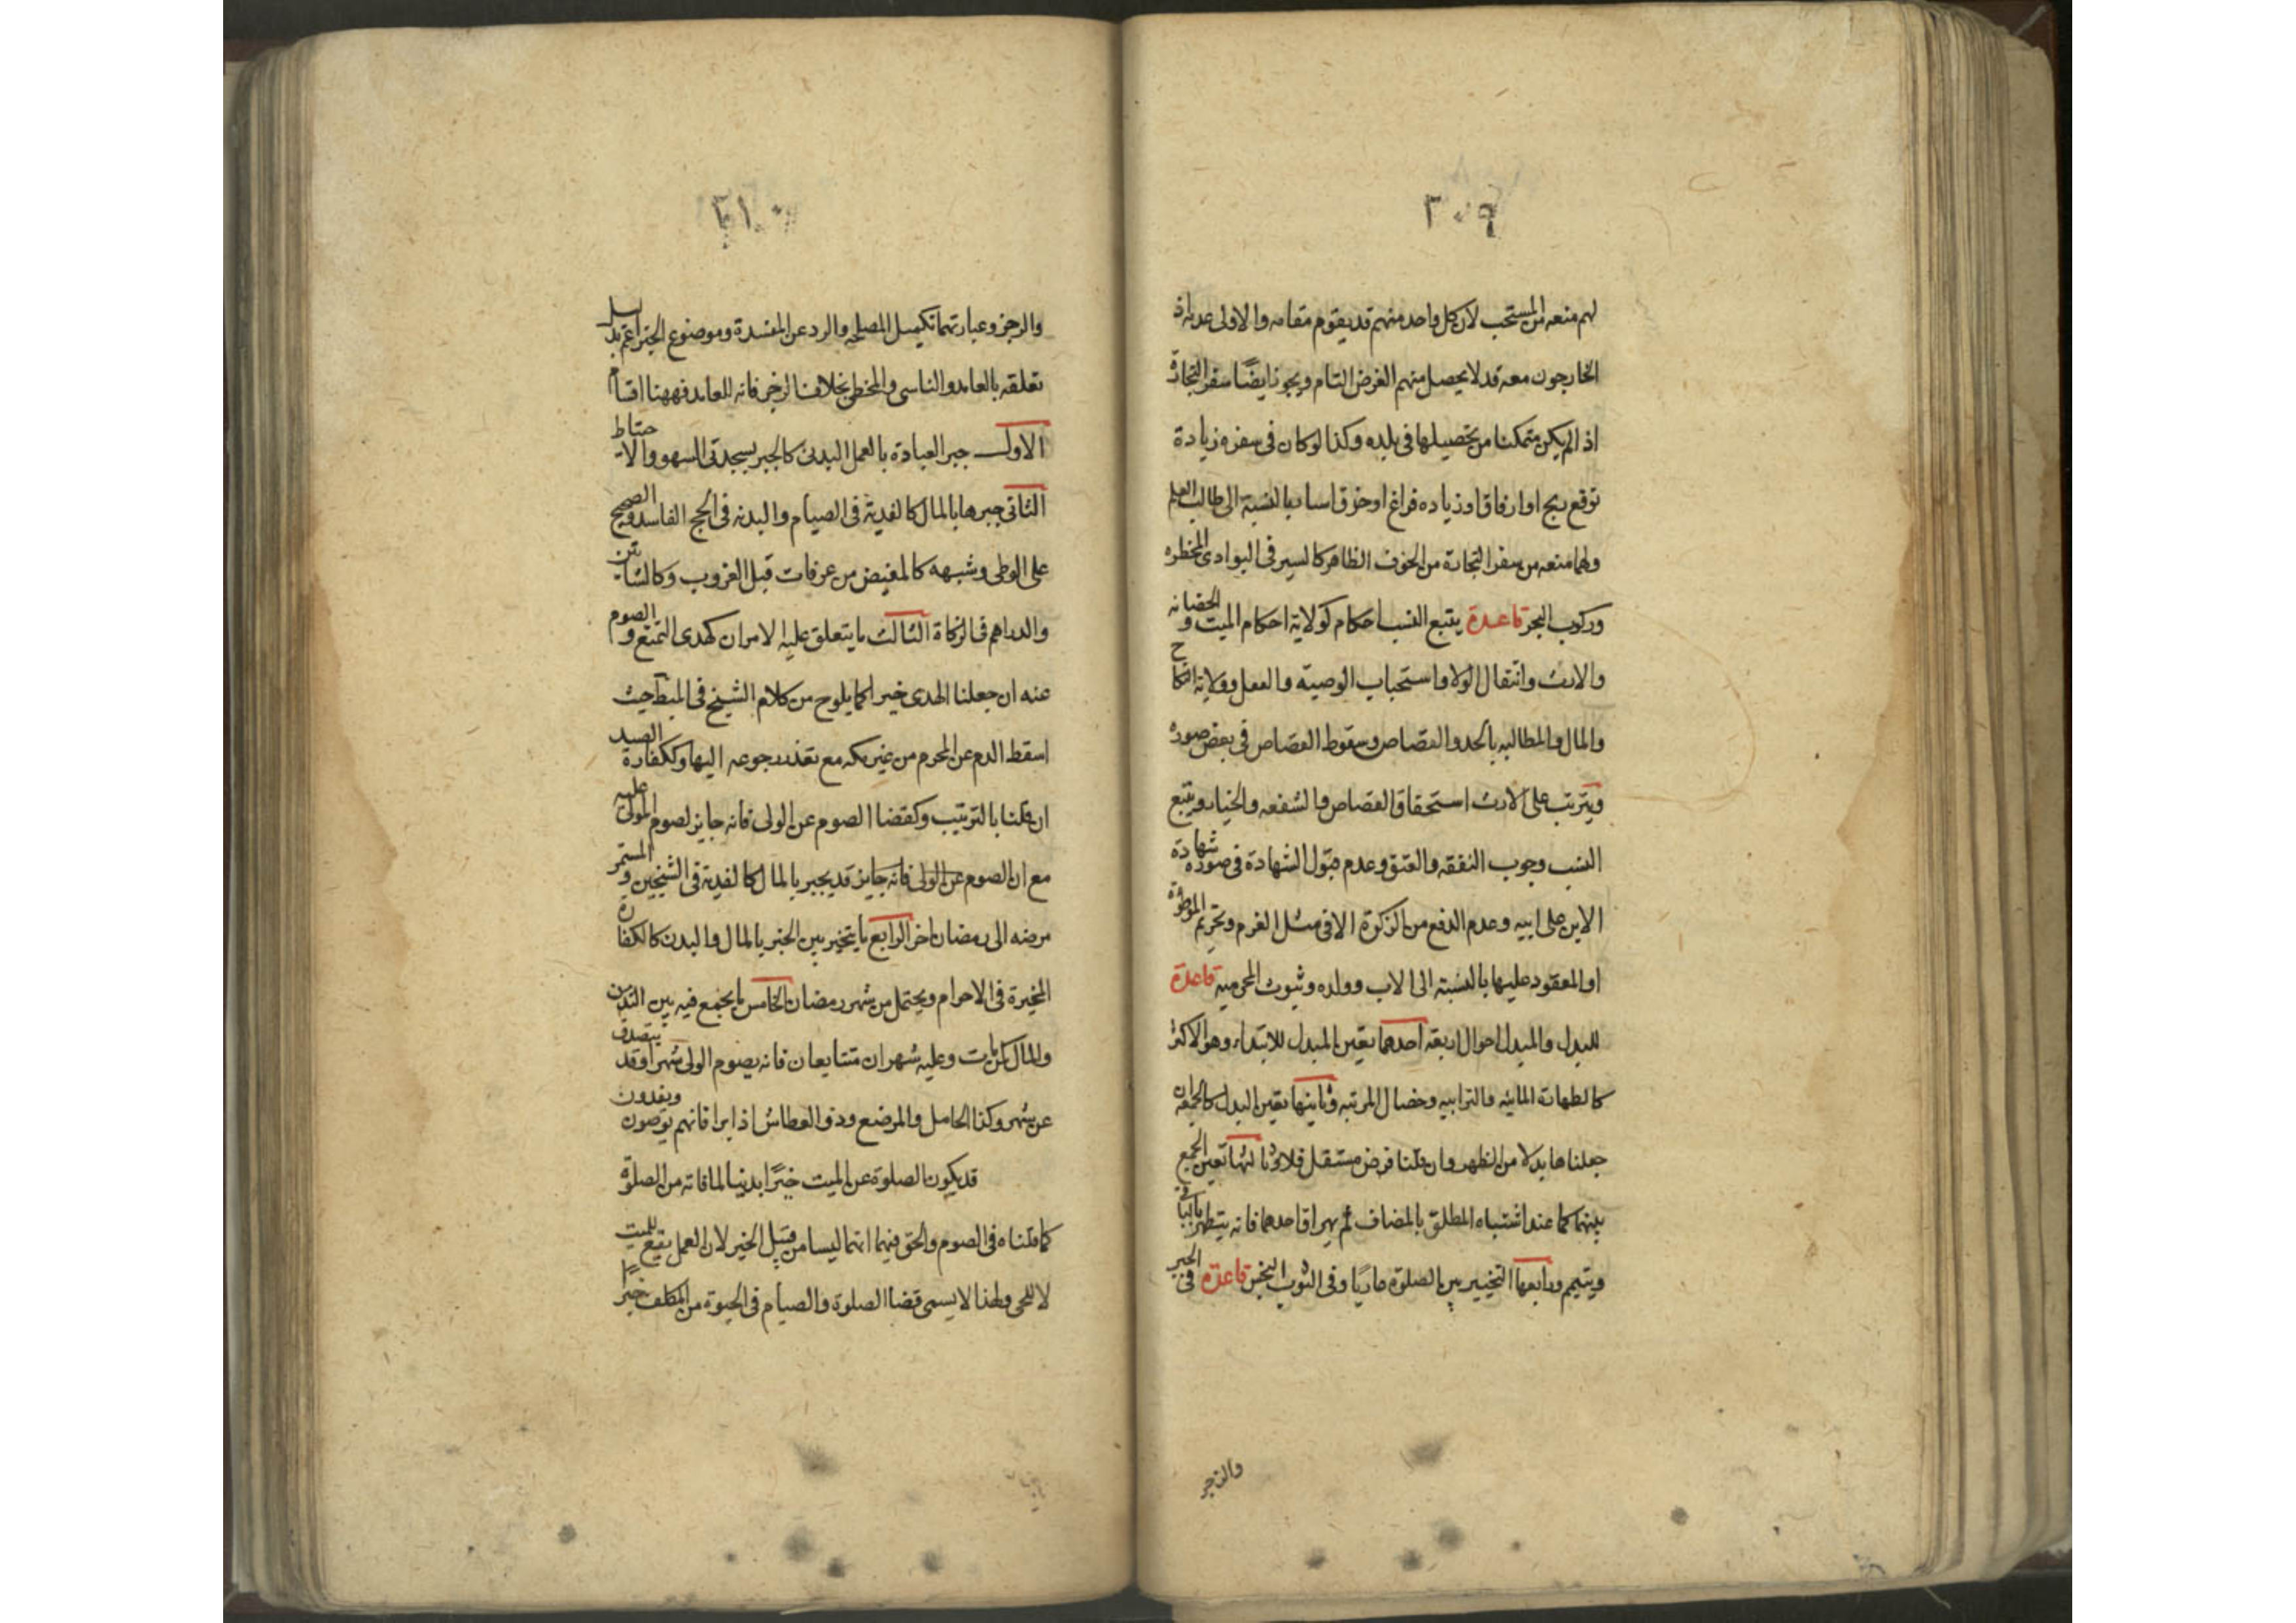 ٢٠٩
لهم منعه من المستحب لان كل واحد منهم قد يقوم مقامه والاولى عدمه اذ
الخارجون معه قد لا يحصل منهم الغرض التام ويجوز ايضًا سفر التجارة
اذا لم يكن متمكنا من تحصيلها فى بلده وكذا لو كان فى سفره زيادة
توقع ربح او ارفاق او زياده فراغ او خرق اسا بالنسبة الى طالب العلم
ولهما منعه من سفر التجارة من الخوف الظاهر كالسير فى البوادى المخطره
وركوب البحر قاعدة يتبع النسب احكام كولاية احكام الميت والحضانه
والارث وانتقال الولا واستحباب الوصية والعقل وولاية النكاح
والمال والمطالبه بالحد والقصاص وسقوط القصاص فى بعض صوره
ويترتب على الارث استحقاق القصاص والشفعه والخيار ويتبع
النسب وجوب النفقه والعتق وعدم قبول الشهادة فى صورة شهادة
الابن على ابيه وعدم الدفع من الزكوة الا فى مثل الغرم وتحريم الموطؤة
او المعقود عليها بالنسبة الى الاب وولده وثبوت المحرميه قاعدة
للبدل والمبدل احوال اربعة احدها تعين المبدل للابتداء وهو الاكثر
كالطهارة المائيه والترابيه وخصال المرتبه وثانيها تعين البدل كالجمعة ان
جعلناها بدلا من الظهر وان قلنا فرض مستقل فلا وثالثها تعين الجمع
بينهما كما عند اشتباه المطلق بالمضاف ثم يهراق احدهما فانه يتطهر بالباقى
ويتيمم ورابعها التخيير بين الصلوة عاريًا وفى الثوب النجس قاعدة فى الجبر
والزجر
٢١٠
والزجر وعبارتهما تكميل المصلحه والرد عن المفسدة وموضوع الجبر اعم بدليل
تعلقه بالعامد والناسى والمخطى بخلاف الزجر فانه للعامد فههنا اقسام
الاول جبر العبادة بالعمل البدنى كالجبر بسجدتى السهو والاحتياط
الثانى جبرها بالمال كالفدية فى الصيام والبدنه فى الحج الفاسد والصحيح
على الوطى وشبهه كالمفيض من عرفات قبل الغروب وكالشاتين
والدراهم فى الزكاة الثالث ما يتعلق عليه الامران كهدى التمتع والصوم
عنه ان جعلنا الهدى خبرا كما يلوح من كلام الشيخ فى المبط حيث
اسقط الدم عن المحرم من غير مكه مع تعذر رجوعه اليها وككفارة الصيد
ان قلنا بالترتيب وكقضا الصوم عن الولى فانه جايز لصوم المولى عليه
مع ان الصوم عن الولى فانه جايز قد يجبر بالمال كالفدية فى الشيخين والمستمر
مرضه الى رمضان اخر الرابع ما يتخير بين الجبر بالمال والبدن كالكفارة
المخيرة فى الاحرام ويحتمل من شهر رمضان الخامس ما يجمع فيه بين البدن
والمال كمن مات وعليه شهران متتابعان فانه يصوم الولى شهرا وقد يتصدق
عن شهر وكذا الحامل والمرضع وذو العطاش اذا برا فانهم يوصون ويفدون
قد يكون الصلوة عن الميت خبرًا بدنيا لما فاته من الصلوة
كما قلناه فى الصوم والحق فيهما انهما ليسا من قبيل الخبر لان العمل يقع للميت
لا للحى ولهذا لا يسمى قضا الصلوة والصيام فى الحيوة من المكلف خبرًا